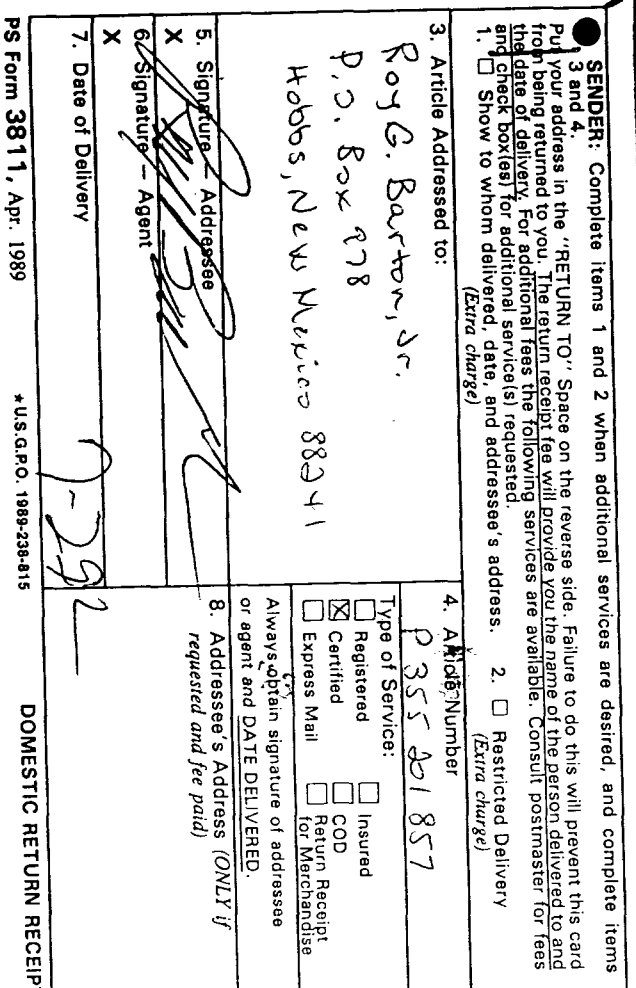 SENDER: Complete items 1 and 2 when additional services are desired, and complete items
3 and 4.
Put your address in the "RETURN TO" Space on the reverse side. Failure to do this will prevent this card
from being returned to you. The return receipt fee will provide you the name of the person delivered to and
the date of delivery. For additional fees the following services are available. Consult postmaster for fees
and check box(es) for additional service(s) requested.
1. ☐ Show to whom delivered, date, and addressee's address. 2. ☐ Restricted Delivery
(Extra charge) (Extra charge)
3. Article Addressed to:
Roy G. Barton, Jr.
P.O. Box 978
Hobbs, New Mexico 88241
4. Article Number
P 355 201 857
Type of Service:
☐ Registered ☐ Insured
☒ Certified ☐ COD
☐ Express Mail ☐ Return Receipt
for Merchandise
Always obtain signature of addressee
or agent and DATE DELIVERED.
5. Signature — Addressee
X
6. Signature — Agent
X
7. Date of Delivery
8. Addressee's Address (ONLY if
requested and fee paid)
PS Form 3811, Apr. 1989 *U.S.G.P.O. 1989-238-815 DOMESTIC RETURN RECEIPT